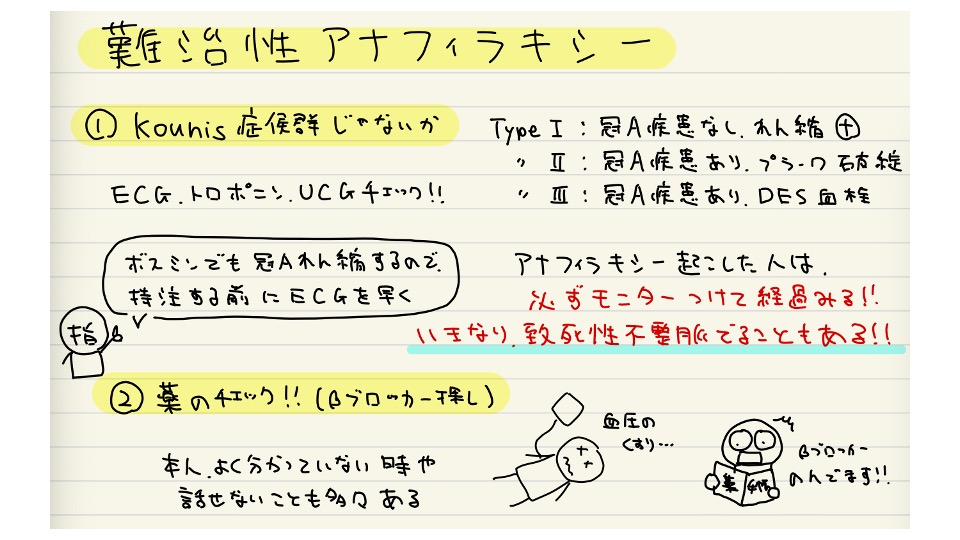 難治性アナフィラキシー
① Kounis 症候群じゃないか
ECG.トロポニン.UCGチェック!!
Type Ⅰ：冠A疾患なし.れん縮⊕
〃 Ⅱ：冠A疾患あり.プラーク破綻
〃 Ⅲ：冠A疾患あり.DES血栓
ボスミンでも冠Aれん縮するので.
持注する前にECGを早く
指
アナフィラキシー起こした人は.
必ずモニターつけて経過みる!!
いきなり.致死性不整脈でることもある!!
② 薬のチェック!!(βブロッカー探し)
本人.よく分かっていない時や
話せないことも多々ある
血圧の
くすり…
βブロッカー
のんでます!!
薬